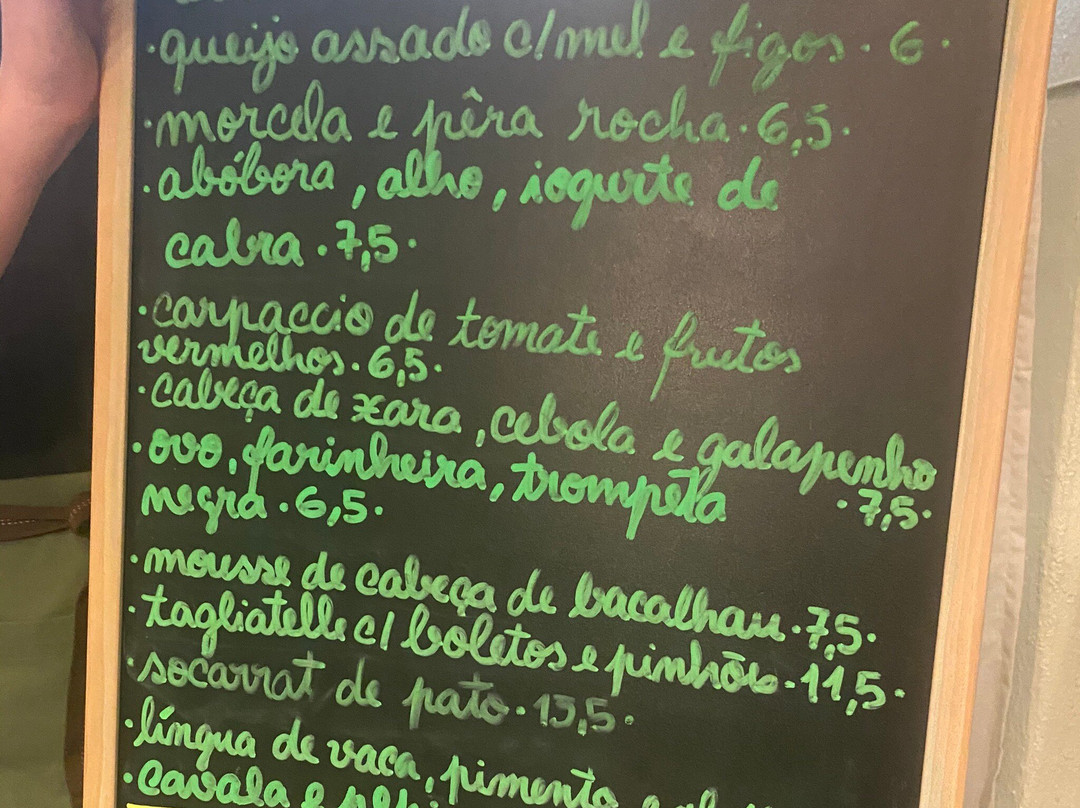 · queijo assado c/ mel e figos · 6 ·
· morcela e pêra rocha · 6,5 ·
· abóbora, alho, iogurte de
cabra · 7,5 ·
· carpaccio de tomate e frutos
vermelhos · 6,5 ·
· cabeça de xara, cebola e galapenho
· 7,5 ·
· ovo, farinheira, trompeta
negra · 6,5 ·
· mousse de cabeça de bacalhau · 7,5 ·
· tagliatelle c/ boletos e pinhões · 11,5 ·
· socarrat de pato · 13,5 ·
· língua de vaca, pimento e
· cavala e